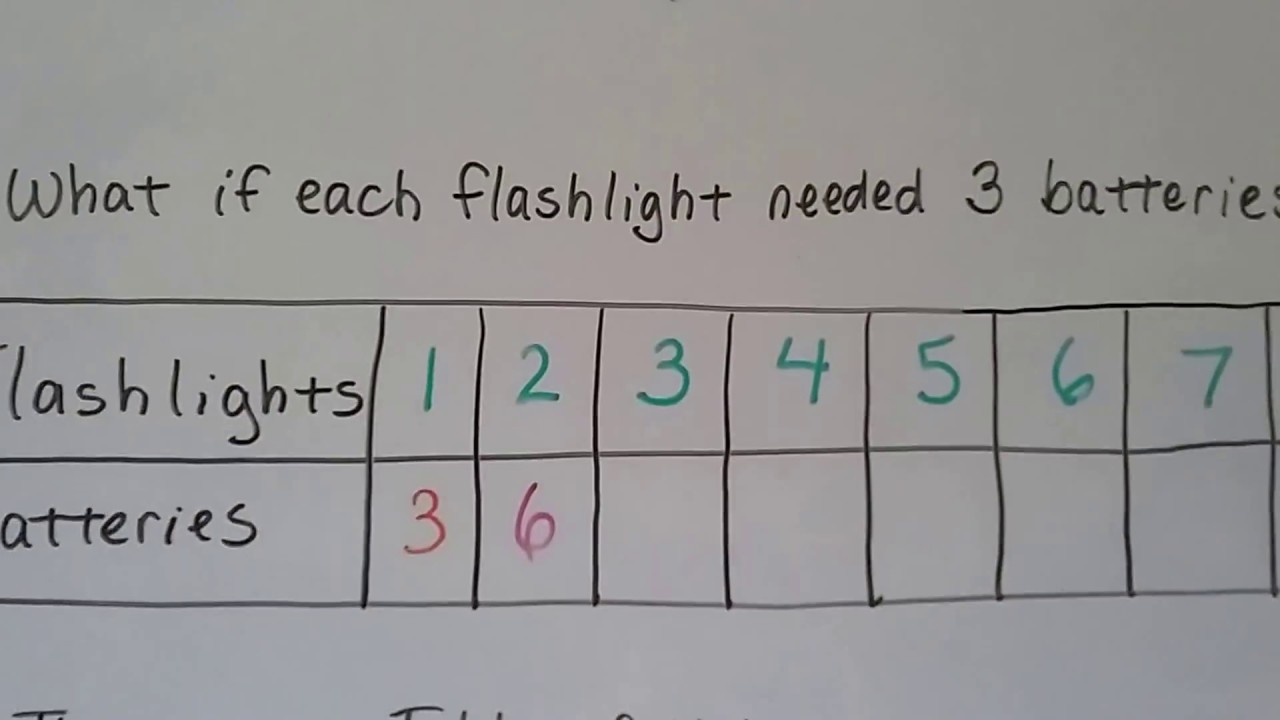 What if each flashlight needed 3 batteries
lashlights 1 2 3 4 5 6 7
atteries 3 6